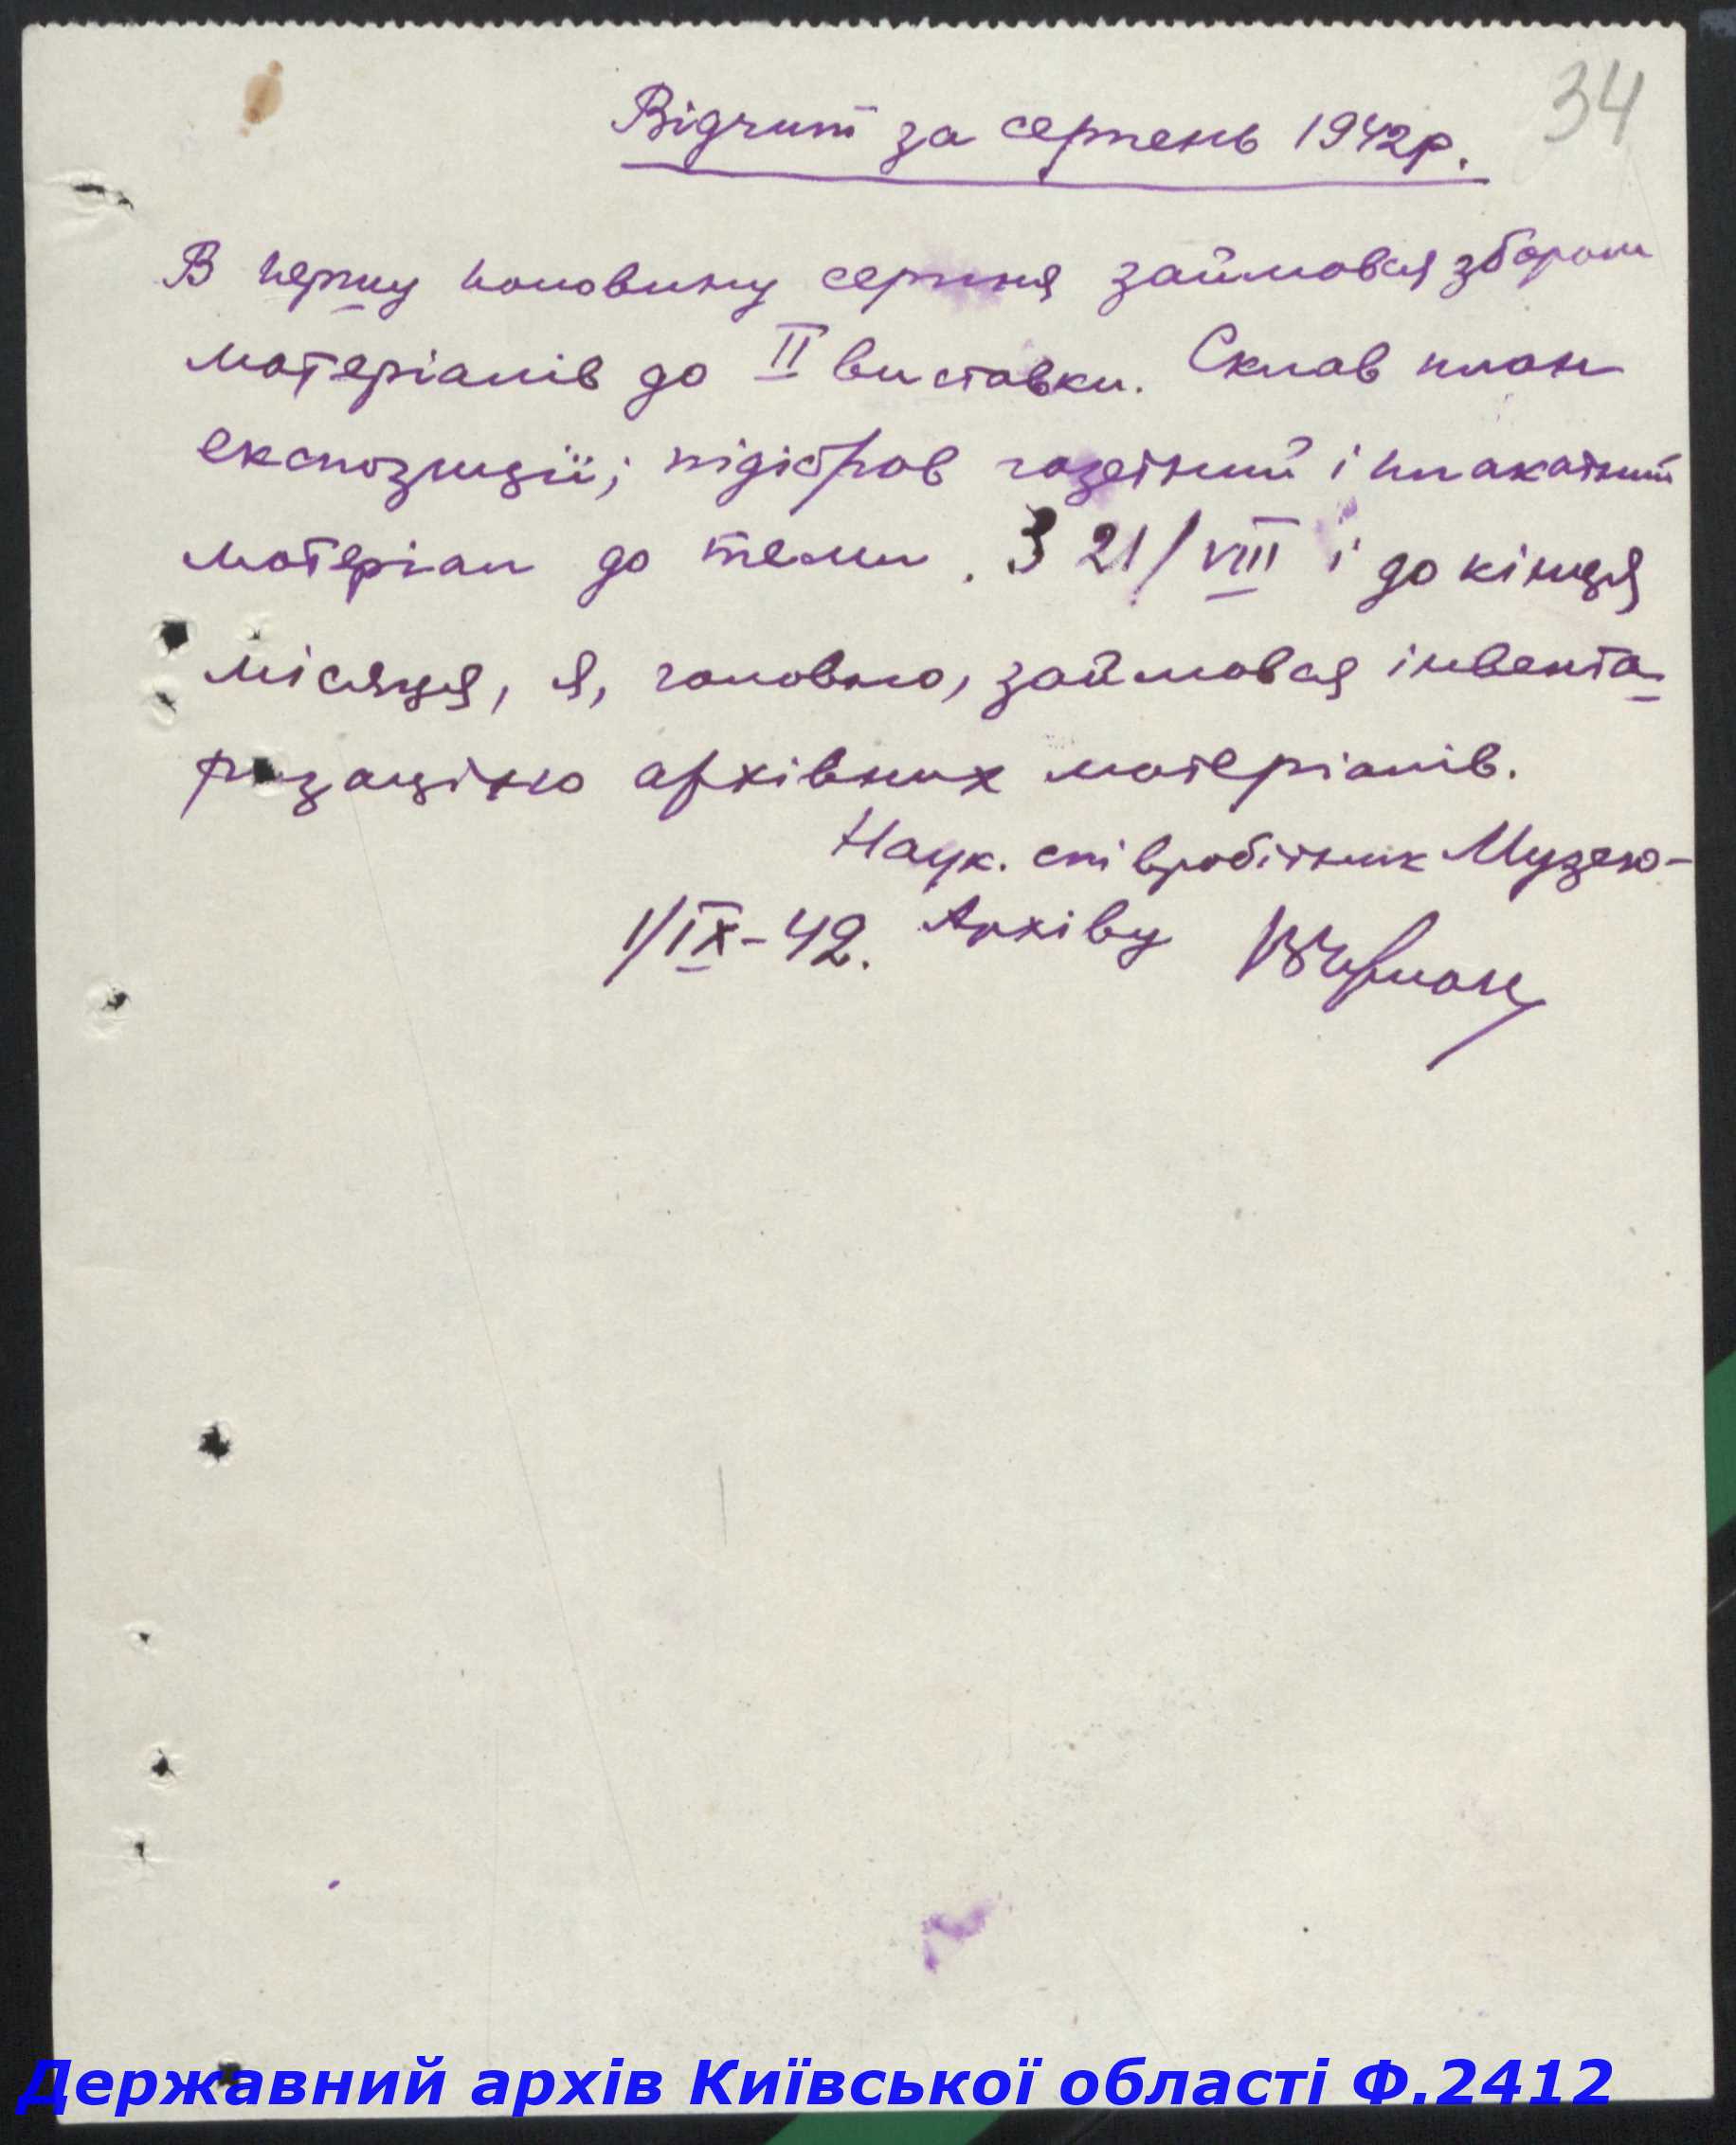 34
Відчит за серпень 1942р.
В першу половину серпня займався збором
матеріалів до II виставки. Склав план
експозиції; підібрав газетний і плакатний
матеріал до теми. З 21/VIII і до кінця
місяця, я, головно, займався інвента-
ризацією архівних матеріалів.
Наук. співробітник Музею-
1/IX-42. Архіву
Державний архів Київської області Ф.2412